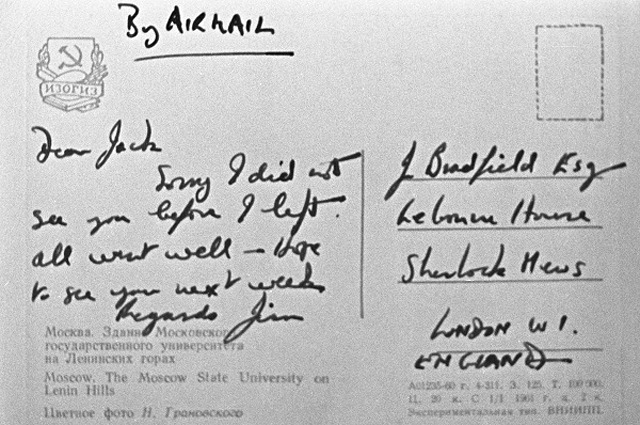 By AIRMAIL
ИЗОГИЗ
Dear Jack
Sorry I did not
see you before I left.
all went well – Hope
to see you next week
Regards Jim
J Bradfield Esq
Lebonne House
Sherlock Mews
LONDON W1.
ENGLAND
Москва. Здание Московского
государственного университета
на Ленинских горах
Moscow. The Moscow State University on
Lenin Hills
Цветное фото Н. Грановского
А01235-60 г. 4-311. З. 125. Т. 100 000.
Экспериментальная тип. ВНИИПП.